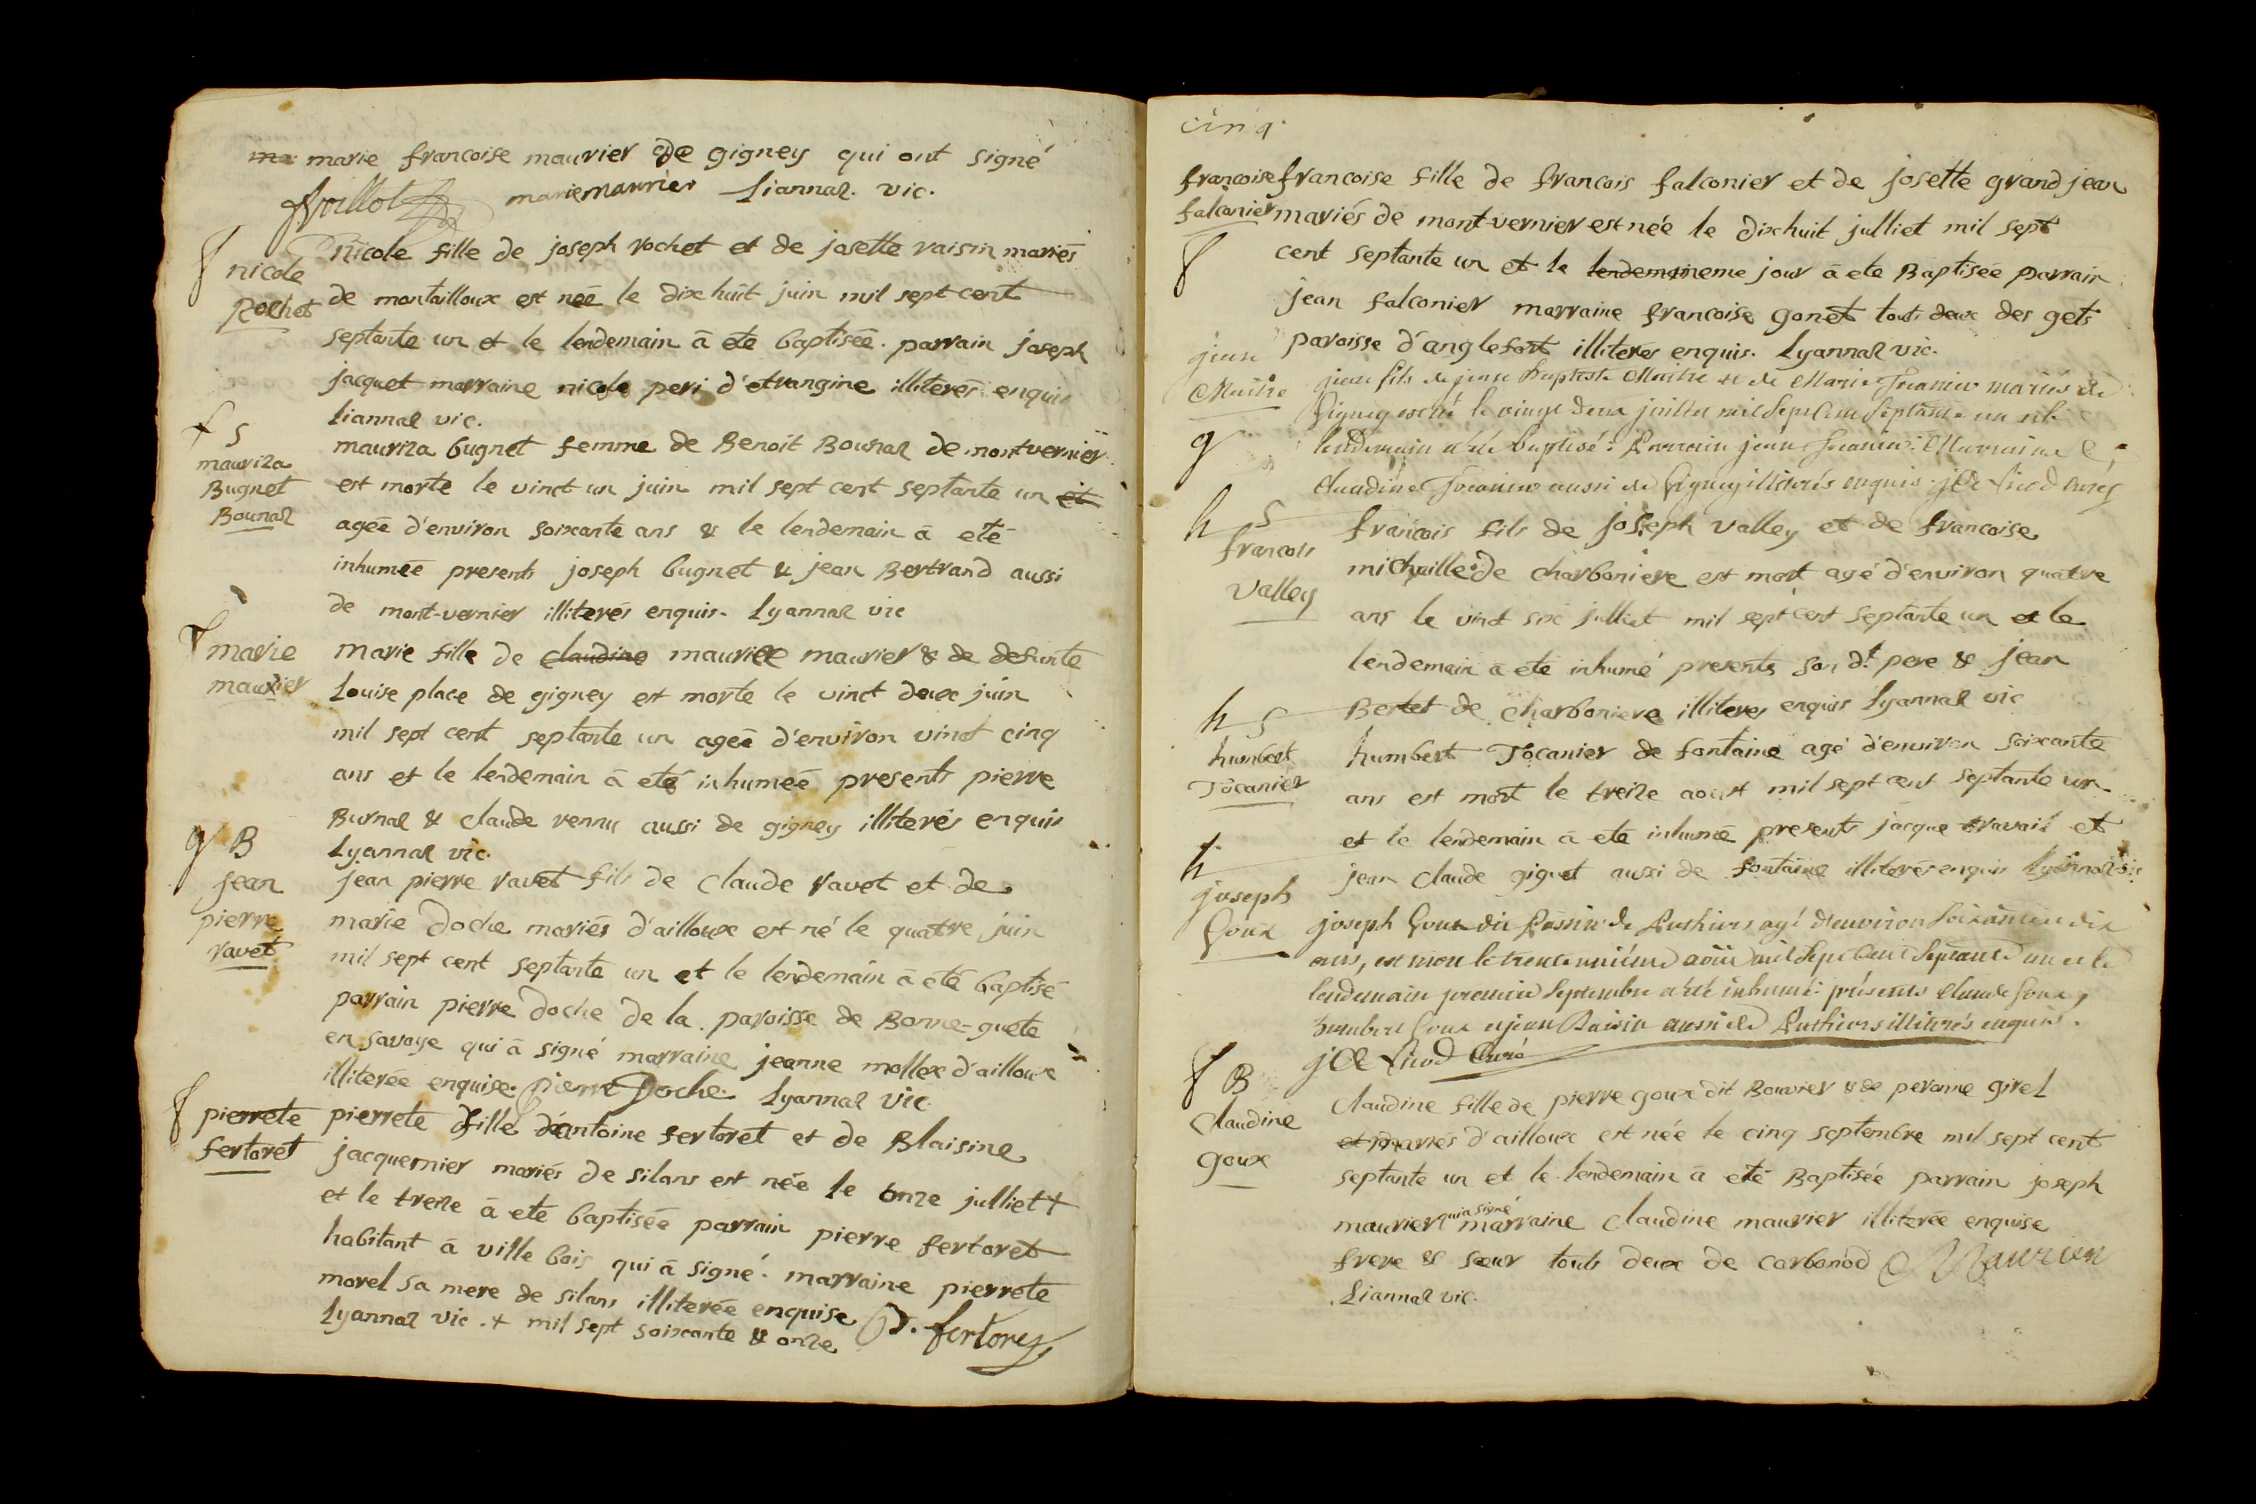 marie francoise maurier de gigney qui ont signé
marie maurrier Liannaz. vic.
f
nicole
Rochet
nicole fille de joseph rochet et de josette raisin mariés
de montailloux est neé le dix huit juin mil sept cent
septante un et le lendemain à eté baptiseé. parrain joseph
jacquet marraine nicole peri d'etrangine illiterés enquis
liannaz vic.
f S
mauriza
Bugnet
Bournaz
mauriza bugnet femme de Benoit Bournaz de montvernier
est morte le vinct un juin mil sept cent septante un et
ageé d'environ soixante ans & le lendemain à eté
inhumeé presents joseph bugnet & jean Bertrand aussi
de mont-vernier illiterés enquis. Lyannaz vic
f
marie
maurier
marie fille de claudine maurice maurier & de defunte
Louise place de gigney est morte le vinct deux juin
mil sept cent septante un ageé d'environ vinct cinq
ans et le lendemain à eté inhumeé presents pierre
Burnaz & claude vennu aussi de gigney illiterés enquis
Lyannaz vic.
g B
jean
pierre
ravet
jean pierre ravet fils de claude ravet et de
marie doche mariés d'ailloux est né le quatre juin
mil sept cent septante un et le lendemain à eté baptisé
parrain pierre doche de la paroisse de Bonne-guete
en savoye qui à signé marraine jeanne mollex d'ailloux
illiterée enquise. pierre Doche. Lyannaz vic.
f pierrete
fertoret
pierrete fille d'antoine fertoret et de Blaisine
jacquemier mariés de silans est née le onze julliet +
et le treize à eté baptisée parrain pierre fertoret
habitant à ville bois qui à signé. marraine pierrete
morel sa mere de silans illiterée enquise P. fertorey
Lyannaz vic. + mil sept soixante & onze
cinq.
françoise
falconier
f
francoise fille de francois falconier et de josette grand jean
mariés de mont-vernier est née le dix huit julliet mil sept
cent septante un et le lendemain meme jour à eté Baptisée parrain
jean falconier marraine francoise gonet touts deux des gets
paroisse d'anglefort illiterés enquis. Lyannaz vic.
jean
Maitre
g
jean fils de jean Baptiste Maitre et de Marie Tocanier mariés de
Gigney est né le vingt deux juillet mil Sept Cent Septante un et le
lendemain a été baptisé: Parrain jean Tocanier: Marraine
Claudine Tocanier aussi de Gigney illitérés enquis
h S
francois
valley
francois fils de joseph valley et de francoise
michaille de charboniere est mort agé d'environ quatre
ans le vinct six julliet mil sept cent septante un et le
lendemain à eté inhumé presents son dt. pere & jean
Bertet de charboniere illiteres enquis Lyannaz vic
h S
humbert
Tocanier
humbert Tocanier de fontaine agé d'environ soixante
ans est mort le treize aoust mil sept cent septante un
et le lendemain à eté inhumé presents jacque travail et
jean claude giguet aussi de fontaine illiterés enquis Lyannaz vic
h
joseph
Goux
joseph Goux dit Passin de Puthiers agé d'environ Soixante dix
ans, est mort le trente unième aoùt mil Sept Cent Septante un et le
lendemain premier Septembre a été inhumé: présents Claude Goux,
humbert Goux et jean Raisin aussi de Puthiers illitérés enquis.
Curé
f B
Claudine
goux
Claudine fille de pierre goux dit Bouvier & de peronne girel
et mariés d'ailloux est née le cinq septembre mil sept cent
septante un et le lendemain à eté Baptisée parrain joseph
maurier qui a signé marraine claudine maurier illiterée enquise
frere & sœur touts deux de carbonod Maurier
Liannaz vic.